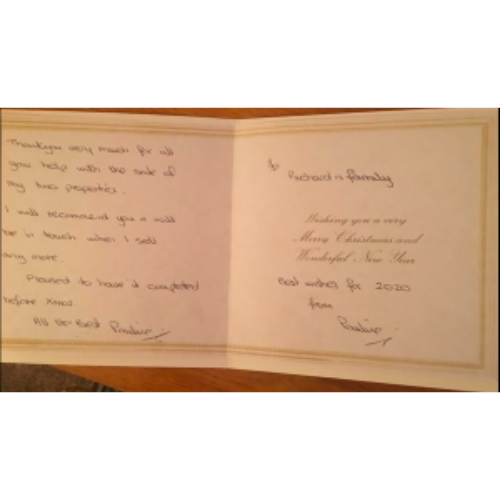 Thankyou very much for all
you help with the sale of
my two properties.
I will recommend you & will
be in touch when I sell
any more.
Pleased to have it completed
before Xmas
All the Best Pauline
To
Richard & family
Wishing you a very
Merry Christmas and
Wonderful New Year
Best wishes for 2020
from
Pauline